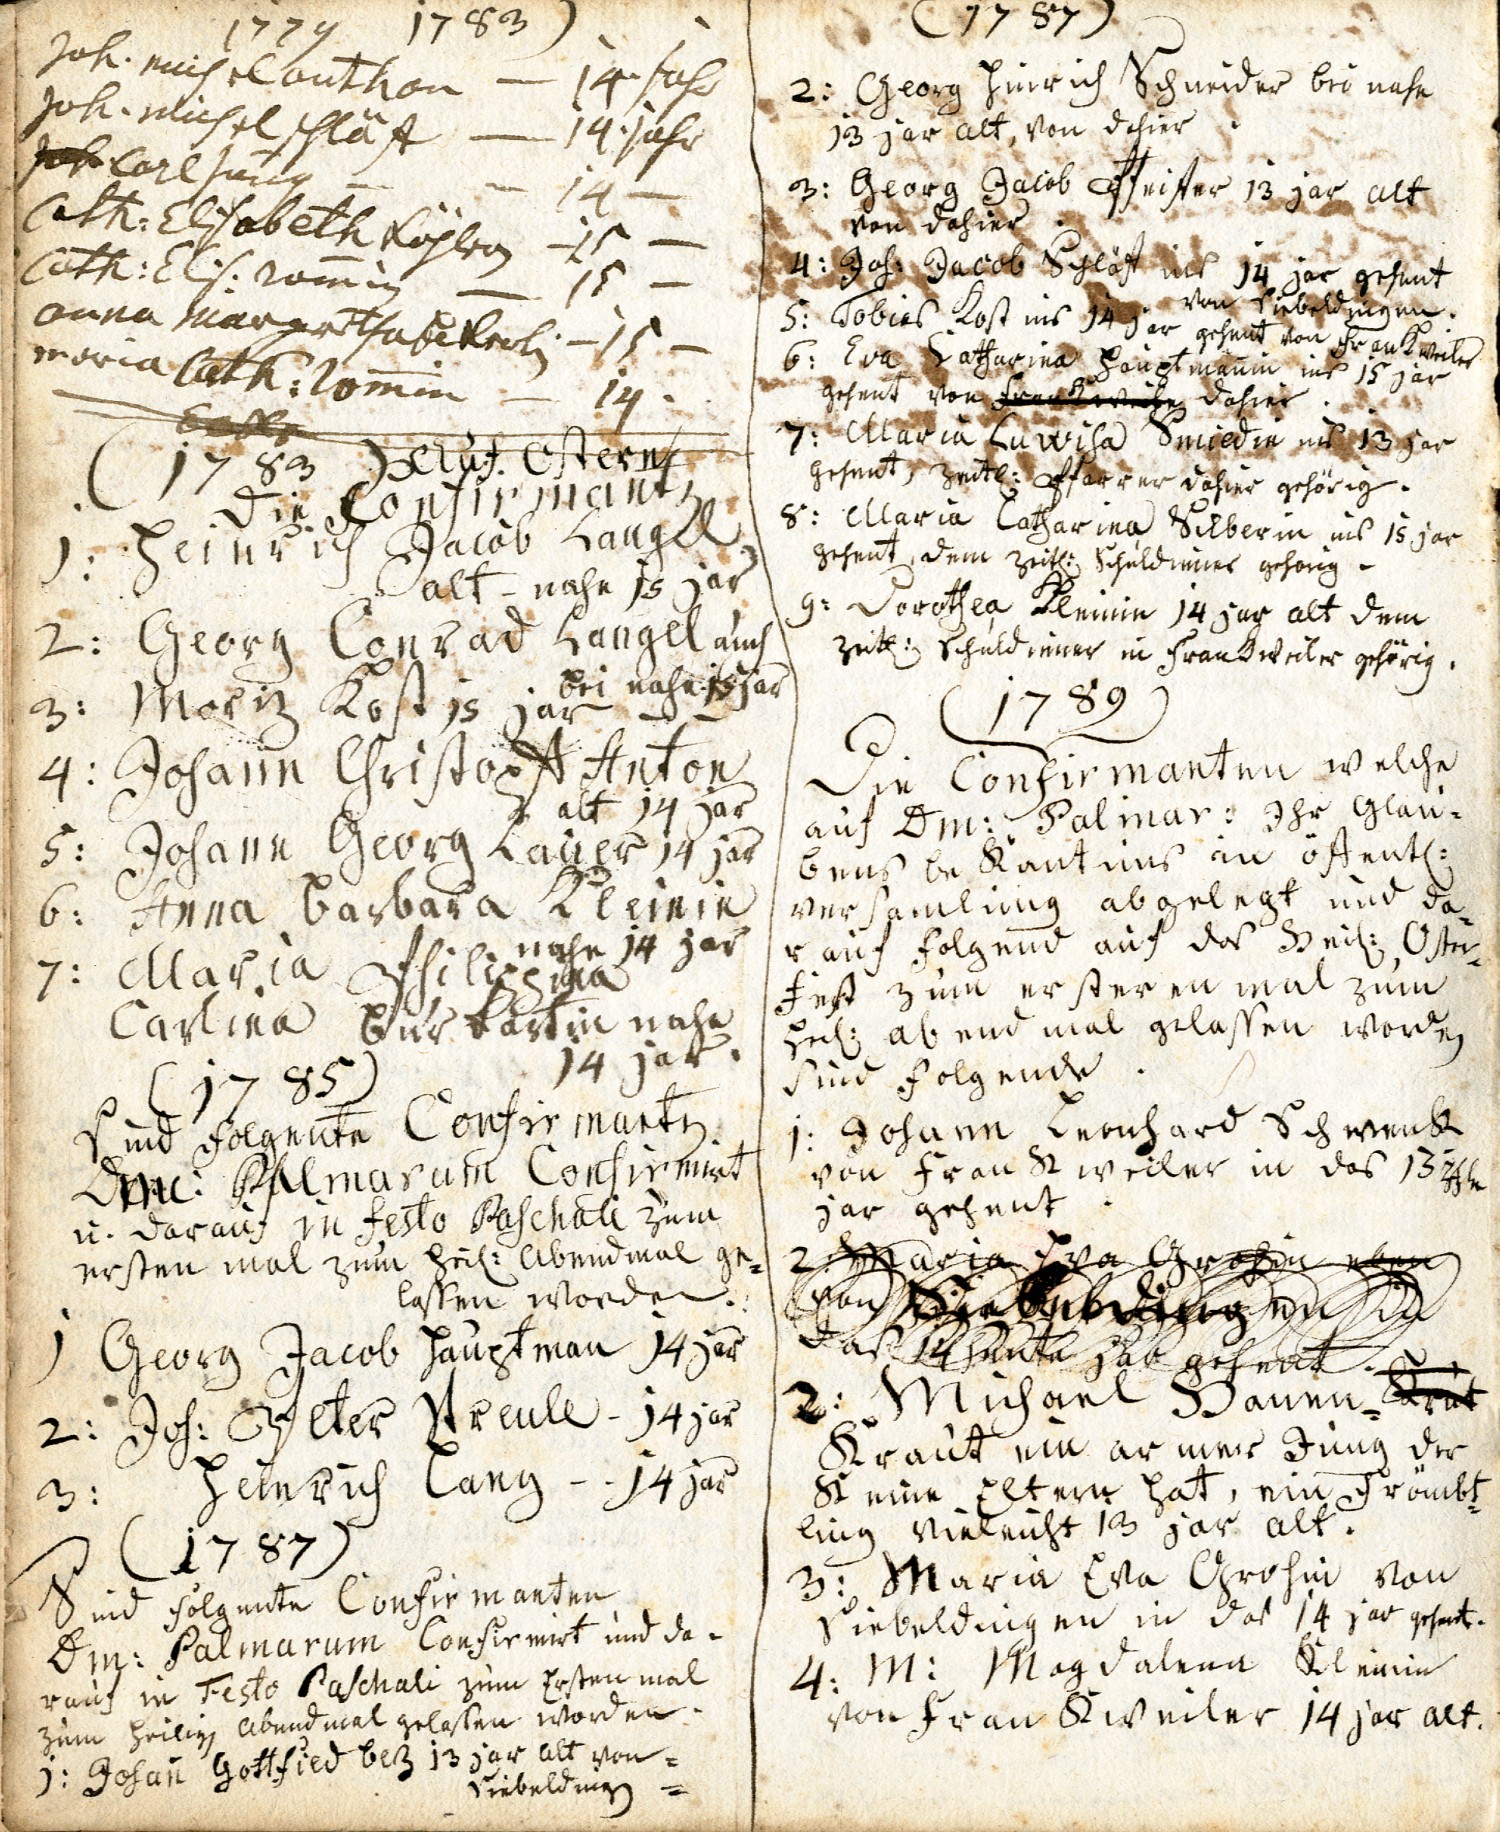 1779 1783)
Joh. michel anthon — 14. Jahr
Joh. michel schläft — 14. jahr
Carl Jung — — 14 —
Cath: Elisabeth — 15 —
Cath: Elis: Romin — 15 —
anna margretha — 15 —
maria Cath: Romin — 14.
(1783) Auf Ostern
Die Confirmanten
1: Heinrich Jacob Langel
alt - nahe 15 jar
2: Georg Conrad Langel auch
bei nahe 15 jar
3: Moritz Kost 15 jar —
4: Johann Christopff Anton
alt 14 jar
5: Johann Georg Lauer 14 jar
6: Anna barbara Kleinin
nahe 14 jar
7: Maria Philippina
Carlina burkartin nahe
14 jar.
(1785)
Sind folgente Confirmanten
Dm: Palmarum Confirmirt
u. darauf in festo Paschali zum
ersten mal zum heil: Abendmal ge=
lassen worden.
1 Georg Jacob Hauptman 14 jar
2: Joh: Peter Streule - 14 jar
3: Heinrich Lang - - 14 jar
(1787)
Sind folgente Confirmanten
Dm: Palmarum Confirmirt und da-
rauf in Festo Paschali zum Ersten mal
zum heiligen Abendmal gelassen worden.
1: Johan Gottfried betz 13 jar alt von =
Siebeldingen =
(1787)
2: Georg Hinrich Schneider bei nahe
13 jar alt, von dahier.
3: Georg Jacob Pfeiffer 13 jar alt
von dahier.
4: Joh: Jacob Schläft ins 14 jar gehent
von Siebeldingen.
5: Tobias Kost ins 14 jar gehent von Frankweiler
6: Eva Catharina Hauptmännin ins 15 jar
gehent von Frankweiler dahier.
7: Maria Luwisa Smiedin ins 13 jar
gehent, zeitl: Pfarrer dahier gehörig.
8: Maria Catharina Silberin ins 15 jar
gehent, dem zeitl: Schuldiener gehörig.
9: Dorothea Kleinin 14 jar alt dem
zeitl: Schuldiener in Frankweiler gehörig.
(1789)
Die Confirmanten welche
auf Dm: Palmar: Ihr Glau-
bens bekantnus in öffentl:
versamlung abgelegt und da-
rauf folgend auf das Heil: Oster-
fest zum ersteren mal zum
Heil: abendmal gelassen worden
sind folgende.
1: Johann Leonhard Schwenk
von Frankweiler in das 13 zehn
jar gehent
2 Maria Eva Grohin eben
von Siebeldingen in
das 14 zente jar gehent.
2: Michael Bauen= Kraut
Kraut ein armer Jung der
keine Eltern hat, ein Frömbt=
ling vieleicht 13 jar alt.
3: Maria Eva Grohin von
Siebeldingen in das 14 jar gehent.
4: M: Magdalena Kleinin
von Frankweiler 14 jar alt.